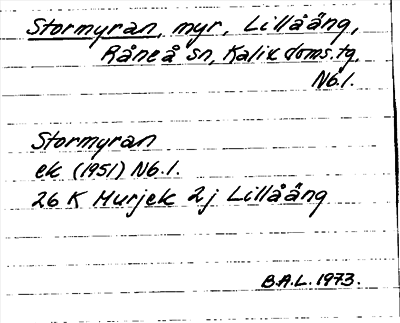 Stormyran, myr, Lillåäng,
Råneå sn, Kalix doms.tg.
Nb.l.
Stormyran
ek (1951) Nb.l.
26 K Murjek 2j Lillåäng
B.A.L. 1973.